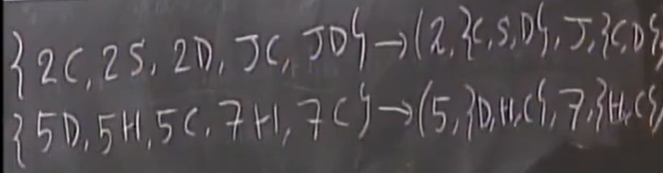 {2C, 2S, 2D, JC, JD} → (2, {C, S, D}, J, {C, D}
{5D, 5H, 5C, 7H, 7C} → (5, {D, H, C}, 7, {H, C}